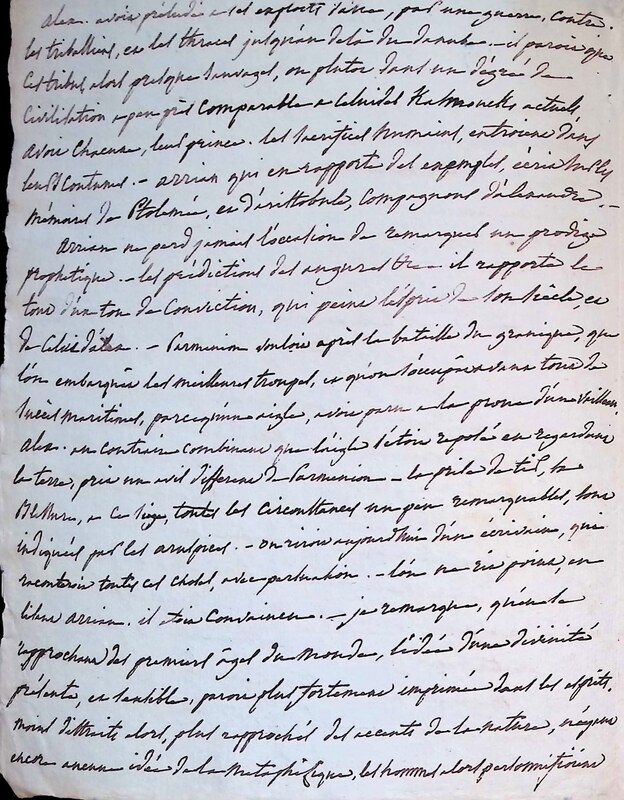 alex. avoit préludé à ses exploits d'asie, par une guerre, contre
les triballiens, et les thraces jusqu'au delà du danube. - il paroit que
ces tribus alors presque sauvages, ou plutot dans un dégré de
civilisation à peu près comparable à celui des Kalmoucks actuels,
avoit chacune, leur prince. les sacrifices humains, entroient dans
leurs coutumes. - arrian qui en rapporte des exemples, écrit sur les
mémoires de Ptolemée, et d'aristobule, compagnons d'alexandre. -
arrian ne perd jamais l'occasion de remarquer un prodige
prophétique. - les prédictions des augures &c - il rapporte le
tout d'un ton de conviction, qui peint l'esprit de son siècle, et
de celui d'alex. - Parmenion vouloit après la bataille du granique, que
l'on embarquât les meilleures troupes, et qu'on s'occupât avant tout de
succès maritimes, parcequ'un aigle, avoit paru à la proue d'un vaisseau.
alex. au contraire combinant que l'aigle s'étoit reposé en regardant
la terre, prit un avis différent de Parmenion - la prise de tir, sa
blessure, à ce siège, toutes les circonstances un peu remarquables, sont
indiquées par les aruspices. - on riroit aujourd'hui d'un écrivain, qui
raconteroit toutes ces choses, avec persuasion. - l'on ne rit point, en
lisant arrian. il étoit convaincu. - je remarque, qu'en se
rapprochant des premiers âges du monde, l'idée d'une divinité
présente, et sensible, paroit plus fortement imprimée dans les esprits.
moins distraits alors, plus rapprochés des accents de la nature, n'ayant
encore aucune idée de la métaphisique, les hommes alors personnifioient